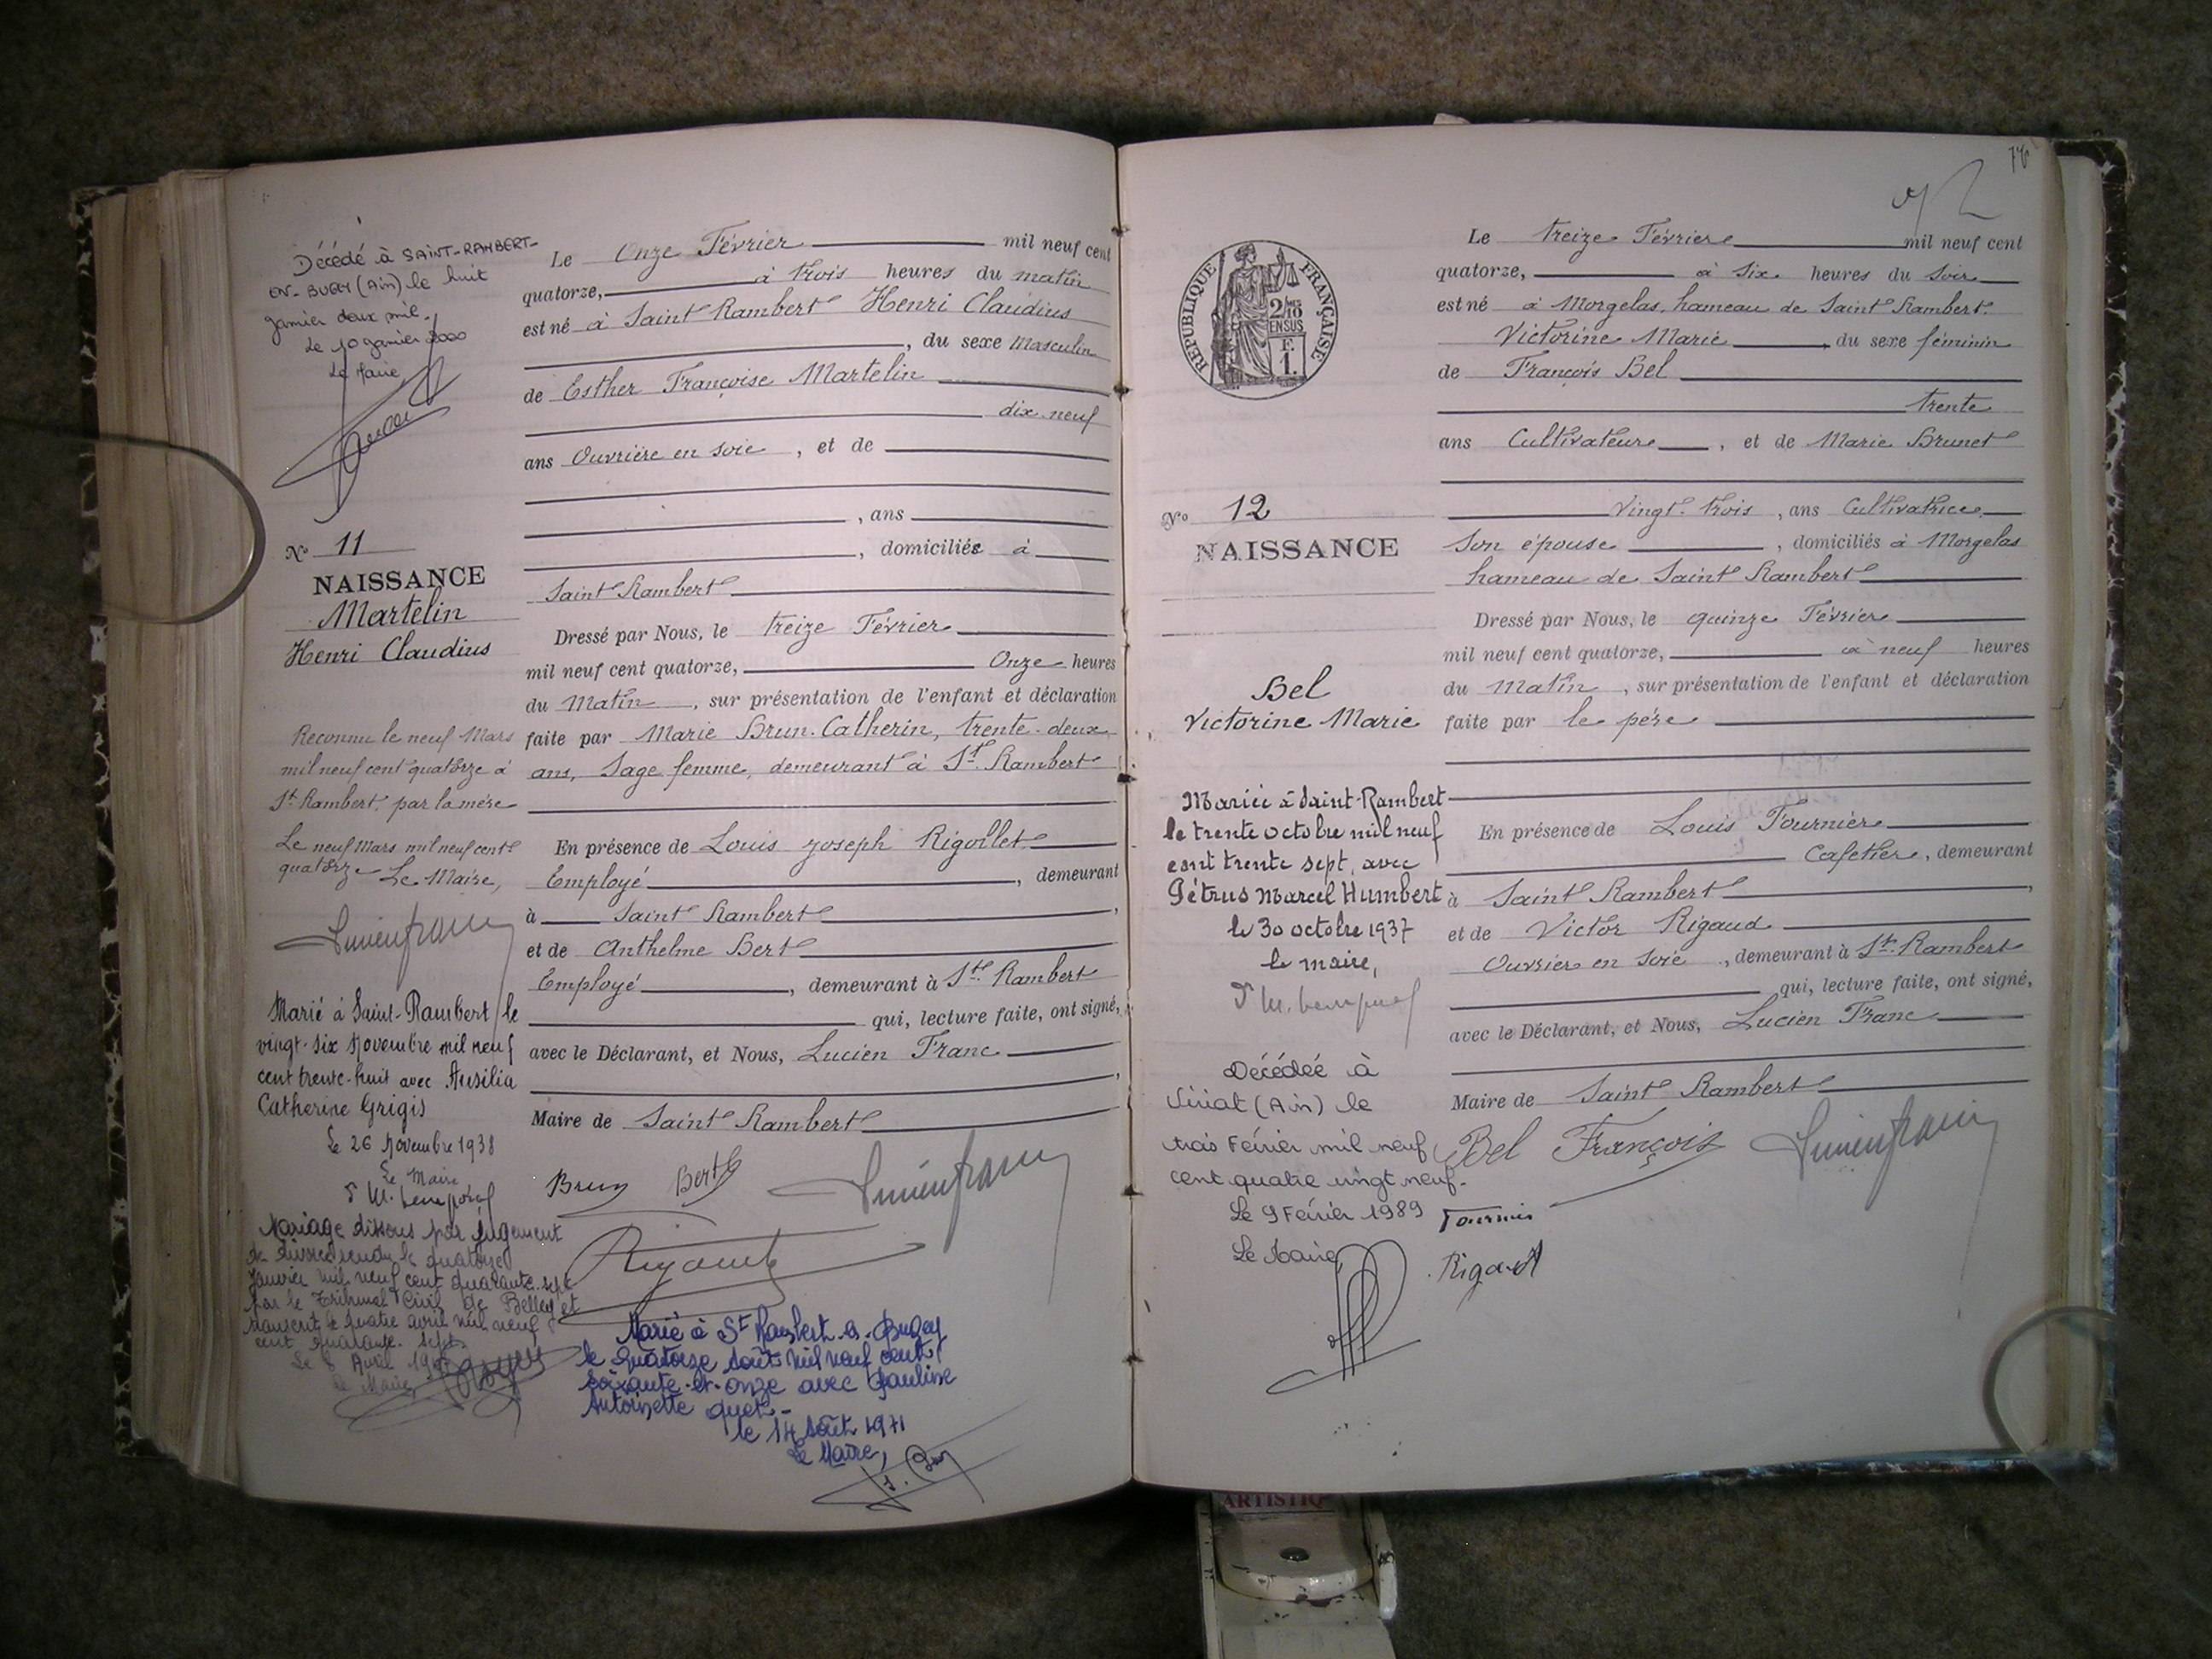 Décédé à SAINT-RAMBERT-
EN-BUGEY (Ain) le huit
janvier deux mil.
Le 10 janvier 2000
Le Maire
N° 11
NAISSANCE
Martelin
Henri Claudius
Reconnu le neuf Mars
mil neuf cent quatorze à
St Rambert, par la mère
Le neuf Mars mil neuf cent
quatorze Le Maire,
Lucien Franc
Marié à Saint-Rambert le
vingt-six Novembre mil neuf
cent trente-huit avec Ausilia
Catherine Grigis
Le 26 Novembre 1938
Le Maire
Mariage dissous par jugement
de divorce rendu le quatorze
Janvier mil neuf cent quarante-sept
par le Tribunal Civil de Belley et
transcrit le quatre avril mil neuf
cent quarante-sept.
Le 8 Avril
Le Maire
Le Onze Février mil neuf cent
quatorze, à trois heures du matin
est né à Saint Rambert Henri Claudius
, du sexe Masculin
de Esther Françoise Martelin
dix-neuf
ans Ouvrière en soie, et de
, ans
, domiciliée à
Saint Rambert
Dressé par Nous, le treize Février
mil neuf cent quatorze, Onze heures
du Matin, sur présentation de l'enfant et déclaration
faite par Marie Brun-Catherin, trente-deux
ans, Sage femme, demeurant à St Rambert
En présence de Louis Joseph Rigollet
Employé, demeurant
à Saint Rambert,
et de Anthelme Bert
Employé, demeurant à St Rambert
qui, lecture faite, ont signé,
avec le Déclarant, et Nous, Lucien Franc
,
Maire de Saint Rambert
Brun Bert Lucien Franc
Marié à St Rambert-en-Bugey
le quatorze août mil neuf cent
soixante-et-onze avec Pauline
Antoinette
le 14 Août 1971
Le Maire,
REPUBLIQUE FRANÇAISE
2/10
EN SUS
F.
1.
N° 12
NAISSANCE
Bel
Victorine Marie
Mariée à Saint-Rambert
le trente octobre mil neuf
cent trente sept, avec
Pétrus Marcel Humbert
le 30 octobre 1937
le maire,
Décédée à
Viriat (Ain) le
trois Février mil neuf
cent quatre vingt neuf.
Le 9 Février 1989
Le Maire
Le treize Février mil neuf cent
quatorze, à six heures du soir
est né à Morgelas, hameau de Saint Rambert.
Victorine Marie, du sexe féminin
de François Bel
trente
ans Cultivateur, et de Marie Brunet
Vingt-trois, ans Cultivatrice
Son épouse, domiciliés à Morgelas
hameau de Saint Rambert
Dressé par Nous, le quinze Février
mil neuf cent quatorze, à neuf heures
du Matin, sur présentation de l'enfant et déclaration
faite par le père
En présence de Louis Fournier
Cafetier, demeurant
à Saint Rambert,
et de Victor Rigaud
Ouvrier en soie, demeurant à St Rambert
qui, lecture faite, ont signé,
avec le Déclarant, et Nous, Lucien Franc
Maire de Saint Rambert
Bel François Lucien Franc
Fournier
Rigaud
ARTISTIQ